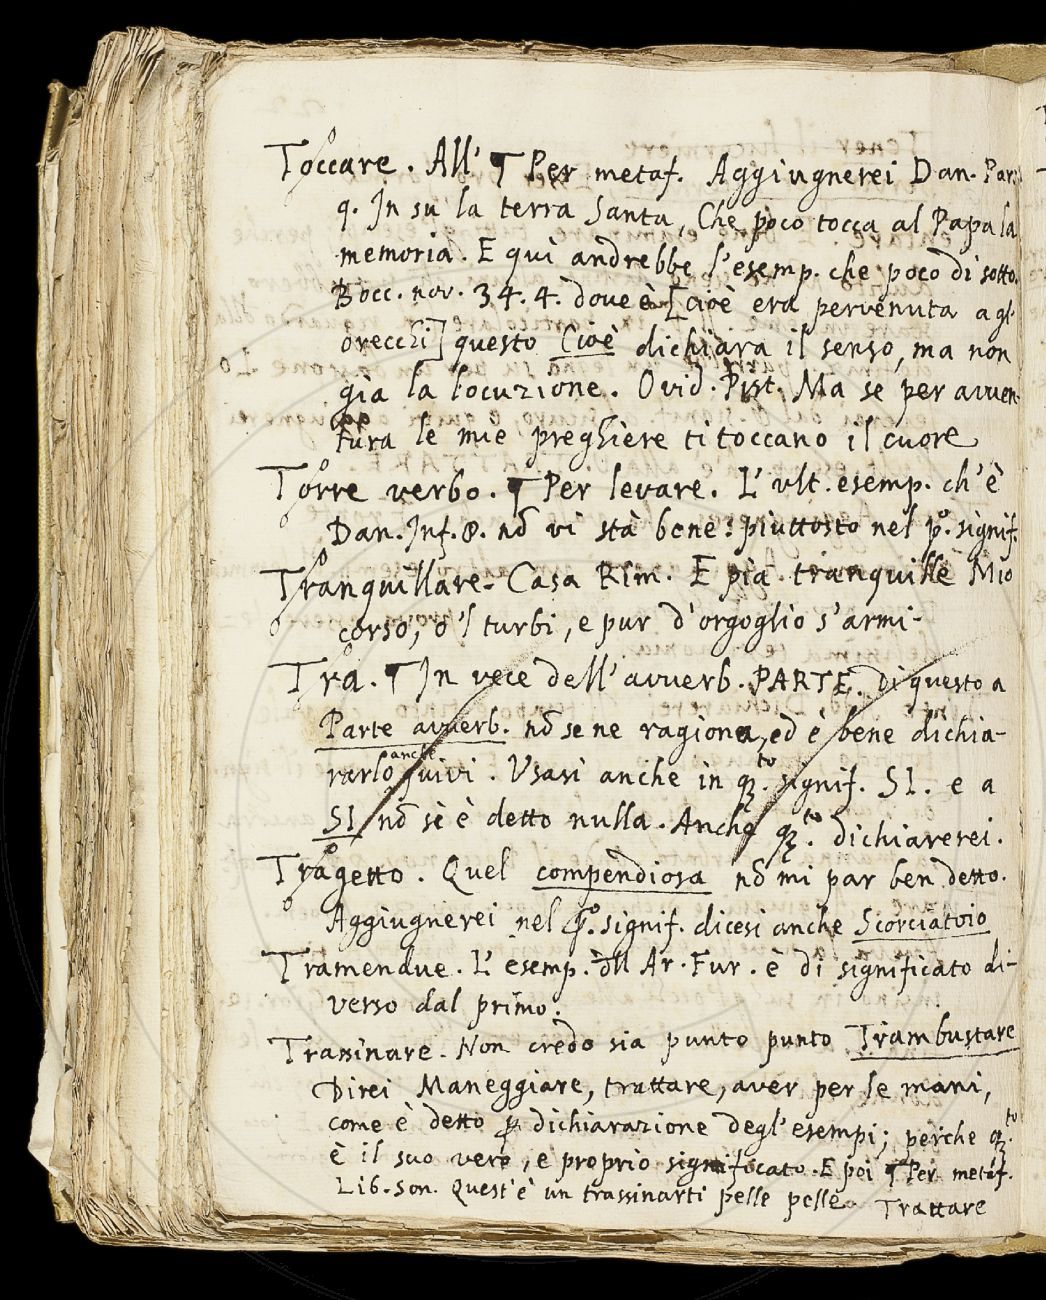 Toccare. All' ¶ Per metaf. Aggiugnerei Dan. Par.
9. In su la terra Santa, Che poco tocca al Papa la
memoria. E quì andrebbe l'esemp. che poco di sotto.
Bocc. nov. 34.4. dove è [cioè era pervenuta agl'
orecchi] questo Cioè dichiara il senso, ma non
già la locuzione. Ovid. Pist. Ma se per avven-
tura le mie preghiere ti toccano il cuore
Torre verbo. ¶ Per levare. L'vlt. esemp. ch'è
Dan. Inf. 8. nō vi stà bene: piuttosto nel pº. signif.
Tranquillare. Casa Rim. E pia tranquille Mio
corso, o 'l turbi, e pur d'orgoglio s'armi-
Tra. ¶ In vece dell'avverb. PARTE. Di questo a
Parte avverb. nō se ne ragiona, ed è bene dichia-
rarlo anche quivi. Vsasi anche in qto. signif. SI. e a
SI nō sè è detto nulla. Anche qto. dichiarerei.
Tragetto. Quel compendiosa nō mi par ben detto.
Aggiugnerei nel pº. signif. dicesi anche Scorciatoio
Tramendue. L'esemp. dll Ar. Fur. è di significato di-
verso dal primo.
Trassinare. Non credo sia punto punto Trambustare
Direi Maneggiare, trattare, aver per le mani,
come è detto ꝑ dichiarazione degl'esempi; perche qto.
è il suo vero, e proprio significato. E poi ¶ Per metaf.
Lib. Son. Quest'è un trassinarti pelle pelle
Trattare